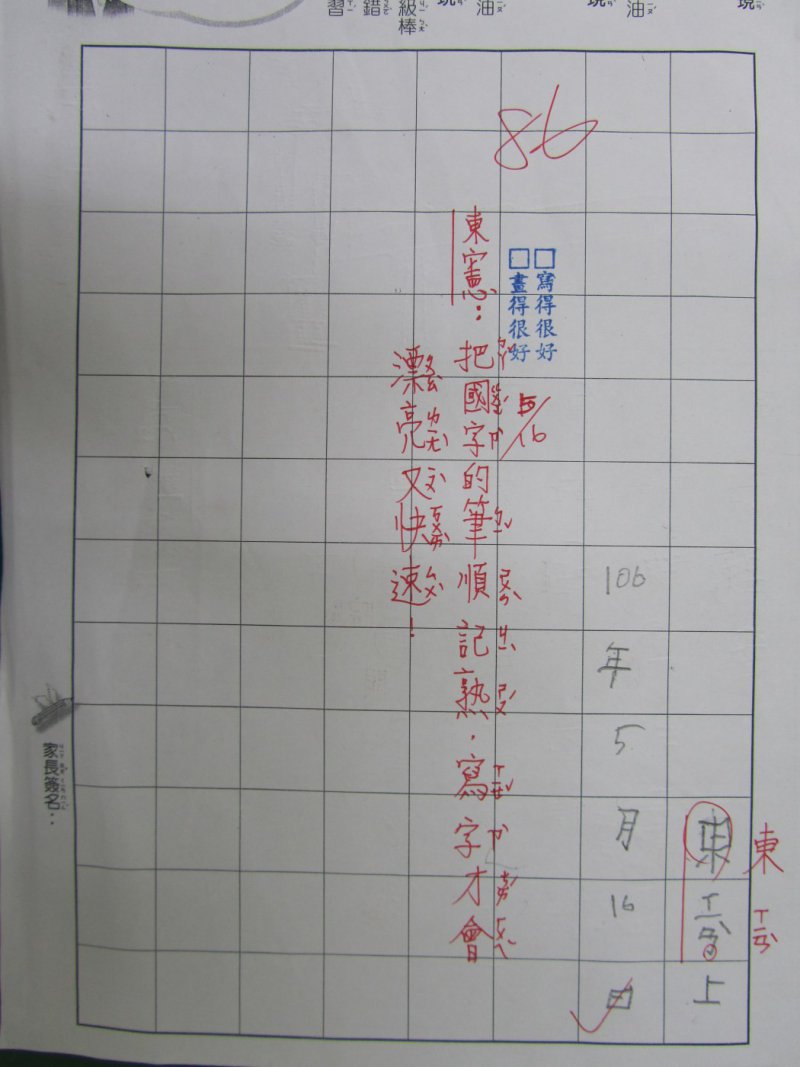 習
錯
級棒
油
油
現
東
ㄒㄧㄢ
上
東
ㄒㄧㄢ
106年5月16日
86
寫得很好
畫得很好
5/16
東憲：把國字的筆順記熟，寫字才會
漂亮又快速！
家長簽名：